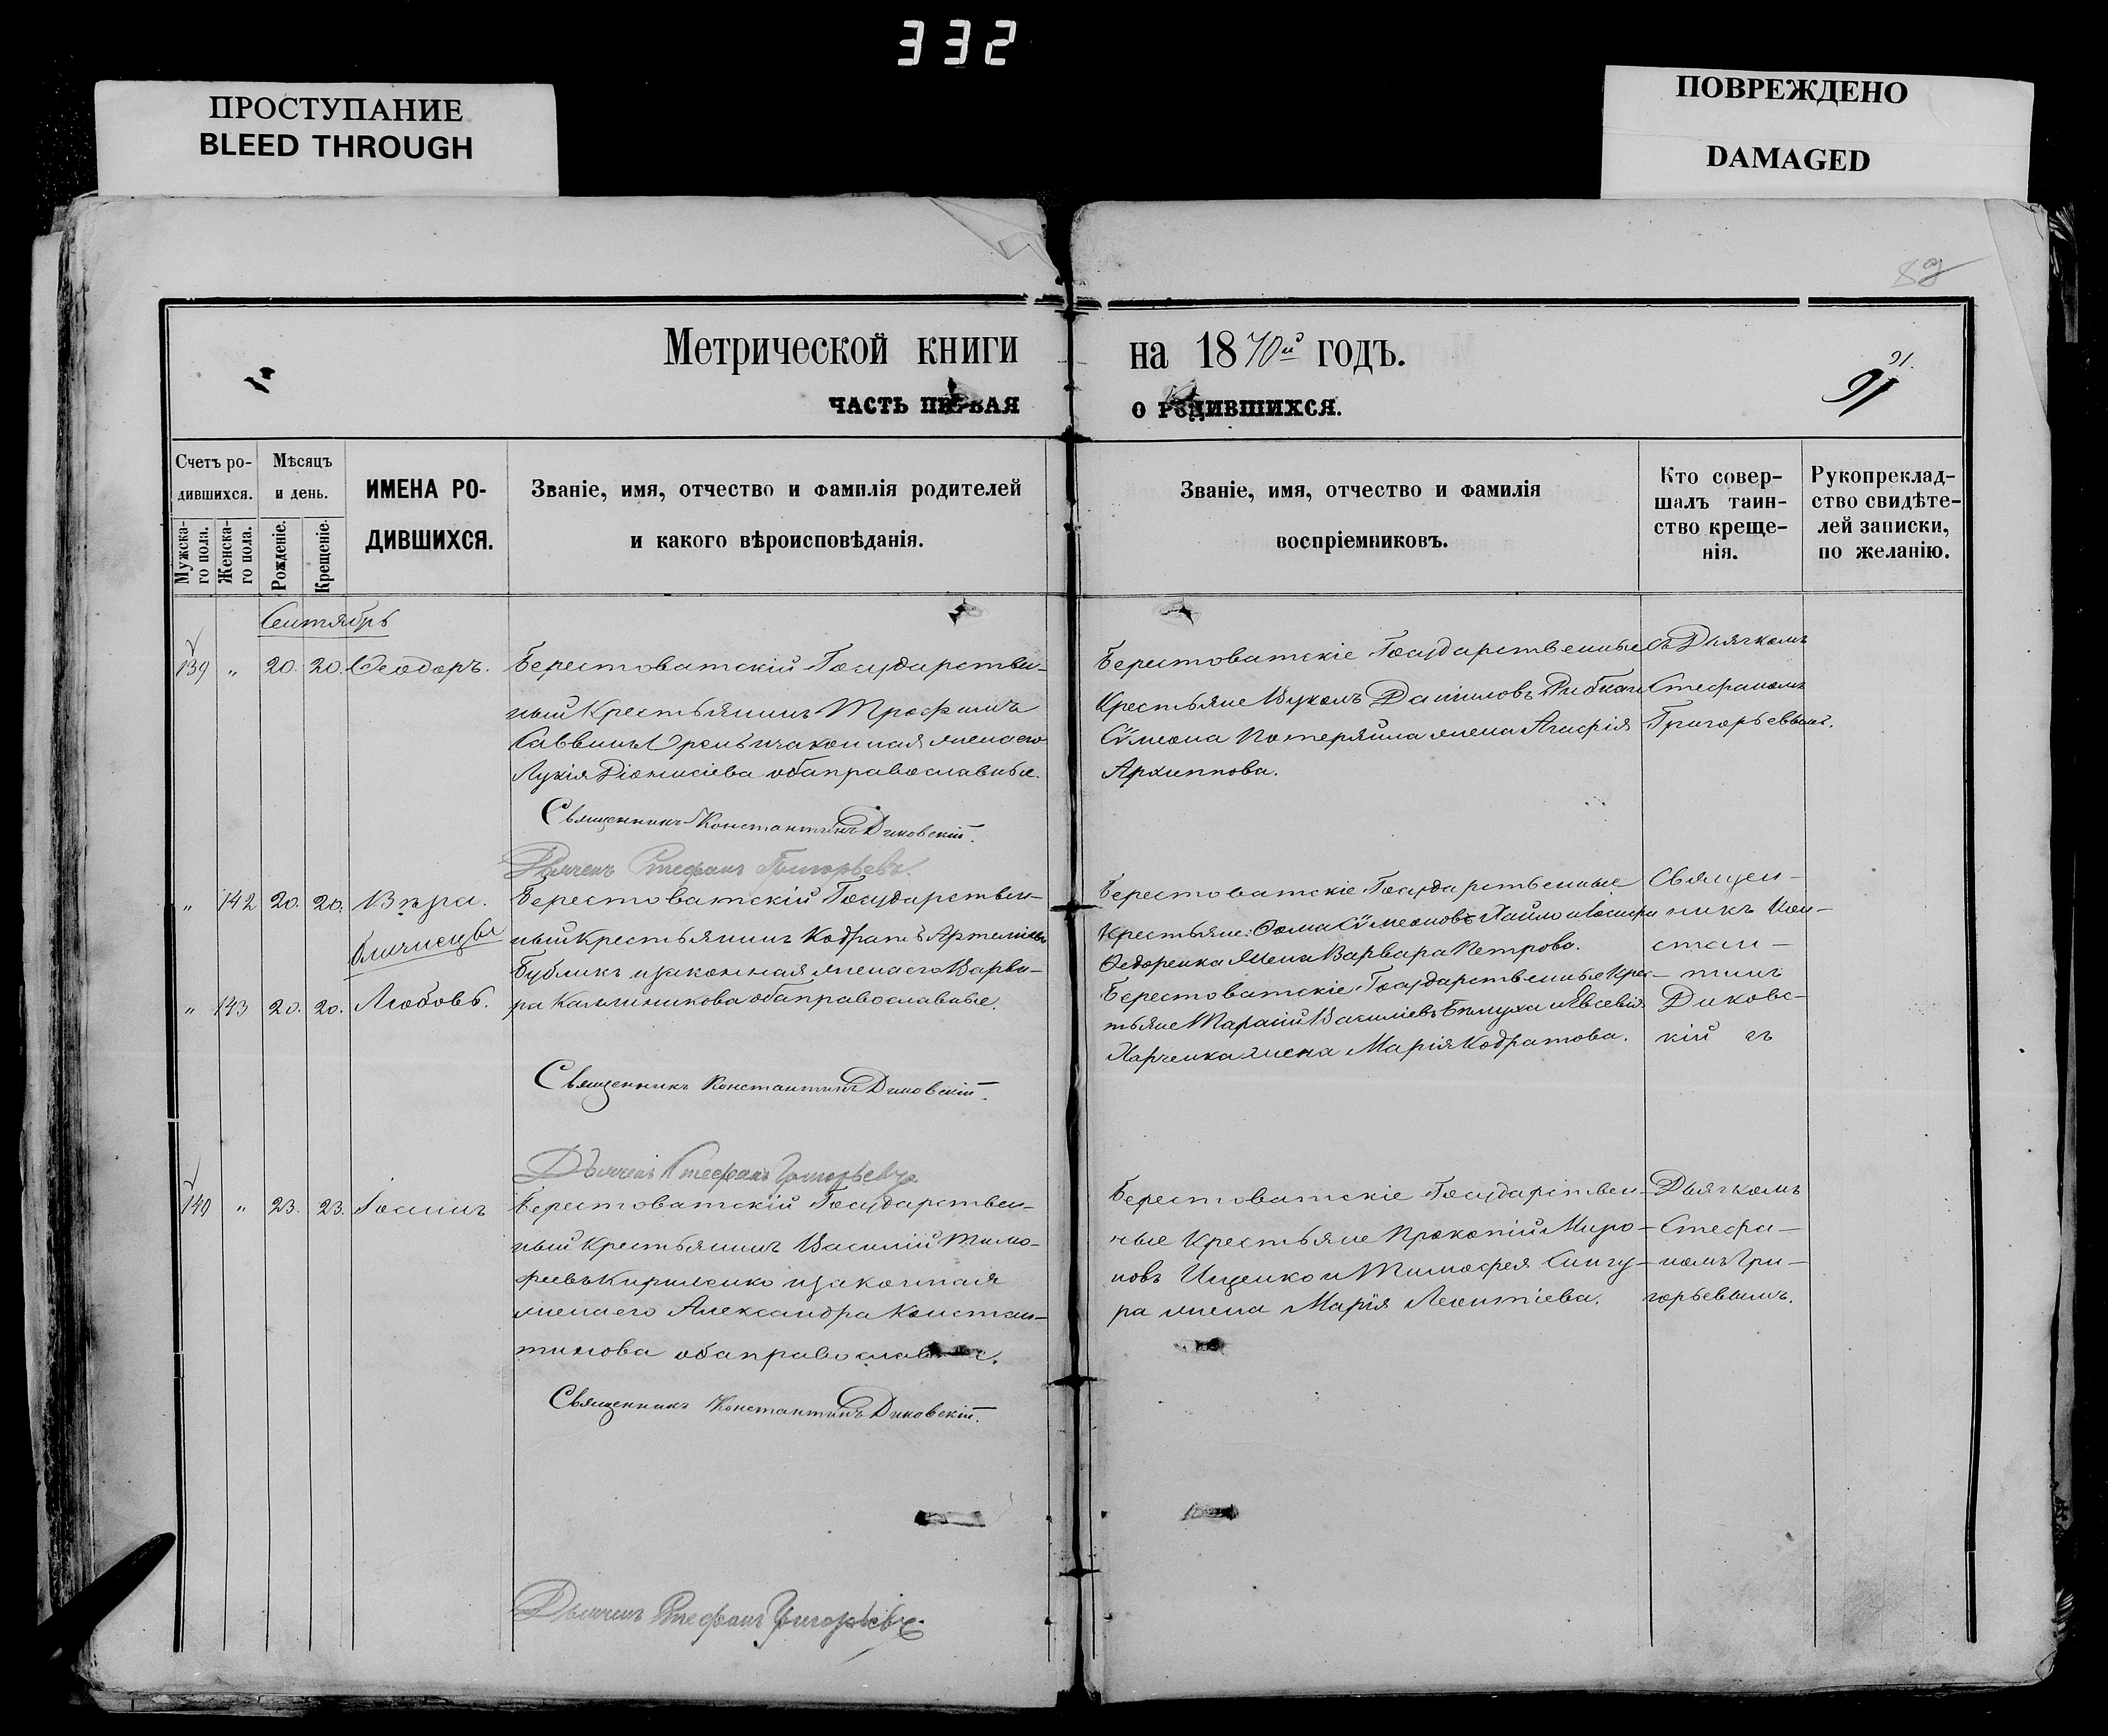 332
ПРОСТУПАНИЕ
BLEED THROUGH
ПОВРЕЖДЕНО
DAMAGED
89
Метрической книги на 1870й годъ.
91.
91
ЧАСТЬ ПЕРВАЯ О РОДИВШИХСЯ.
Счетъ ро-
дившихся.
Мужска-
го пола.
Женска-
го пола.
Мѣсяцъ
и день.
Рожденіе.
Крещеніе.
ИМЕНА РО-
ДИВШИХСЯ.
Званіе, имя, отчество и фамилія родителей
и какого вѣроисповѣданія.
Званіе, имя, отчество и фамилія
воспріемниковъ.
Кто совер-
шалъ таин-
ство креще-
нія.
Рукоприклад-
ство свидѣте-
лей записки,
по желанію.
Сентябрь
139 " 20. 20. Ѳеодоръ.
Берестоватскій Государствен-
ный Крестьянинъ Трофимъ
Саввинъ и законная жена его
Лукія Діонисіева оба православные.
Священникъ Константинъ Диковскій.
Дьячекъ Стефанъ Григорьевъ.
Берестоватскіе Государственные
Крестьяне Вуколъ Даниловъ и
Сѵмеона Потеряйла жена Агафія
Архиппова.
съ Дьячкомъ
Стефаномъ
Григорьевымъ.
" 142 20. 20. Вѣра.
близнецы
" 143 20. 20. Любовь.
Берестоватскій Государствен-
ный Крестьянинъ Кодратъ Артеміевъ
Бубликъ и законная жена его Варва-
ра Каллиникова оба православные.
Священникъ Константинъ Диковскій.
Дьячекъ Стефанъ Григорьевъ
Берестоватскіе Государственные
Крестьяне: Ѳома Сѵмеоновъ и
Ѳедоренка жена Варвара Петрова.
Берестоватскіе Государственные Крес-
тьяне Тарасій Василіевъ и Евсевія
Харченка жена Марія Кодратова.
Священ-
никъ Кон-
стан-
тинъ
Диковс-
кій съ
140 " 23. 23. Іоаннъ
Берестоватскій Государствен-
ный Крестьянинъ Василій Тимо-
феевъ Кириленко и законная
жена его Александра Констан-
тинова оба православные.
Священникъ Константинъ Диковскій.
Дьячекъ Стефанъ Григорьевъ.
Берестоватскіе Государствен-
ные Крестьяне Прокопій Миро-
новъ Ищенко и Тимофея Сингу-
ра жена Марія Леонтіева.
Дьячкомъ
Стефа-
номъ Гри-
горьевымъ.